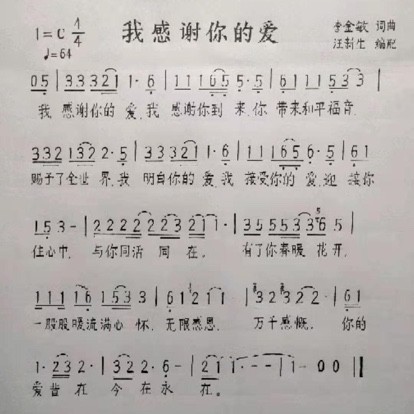 我感谢你的爱
1=C 4/4
♩=64
李金敏 词曲
汪新生 编配
05 | 33321 1·6 | 11165·5·5 | 1113 22 |
我 感谢你的 爱,我 感谢你到 来,你 带来和平福音.
332 132 2·5 | 33321 1·6 | 11165 5·5 | 61
赐予了全世 界,我 明白你的 爱,我 接受你的 爱,迎 接你
153- | 2222232 2- | 3555335
住心中, 与你同活 同 在. 有了你春暖 花 开,
11116 1533 | 61211 | 32322· 61
一股股暖流满心 怀, 无限感恩, 万千感慨, 你的
1·232· | 322·6- | 211--- | 1-00 ‖
爱昔 在 今在永 在.